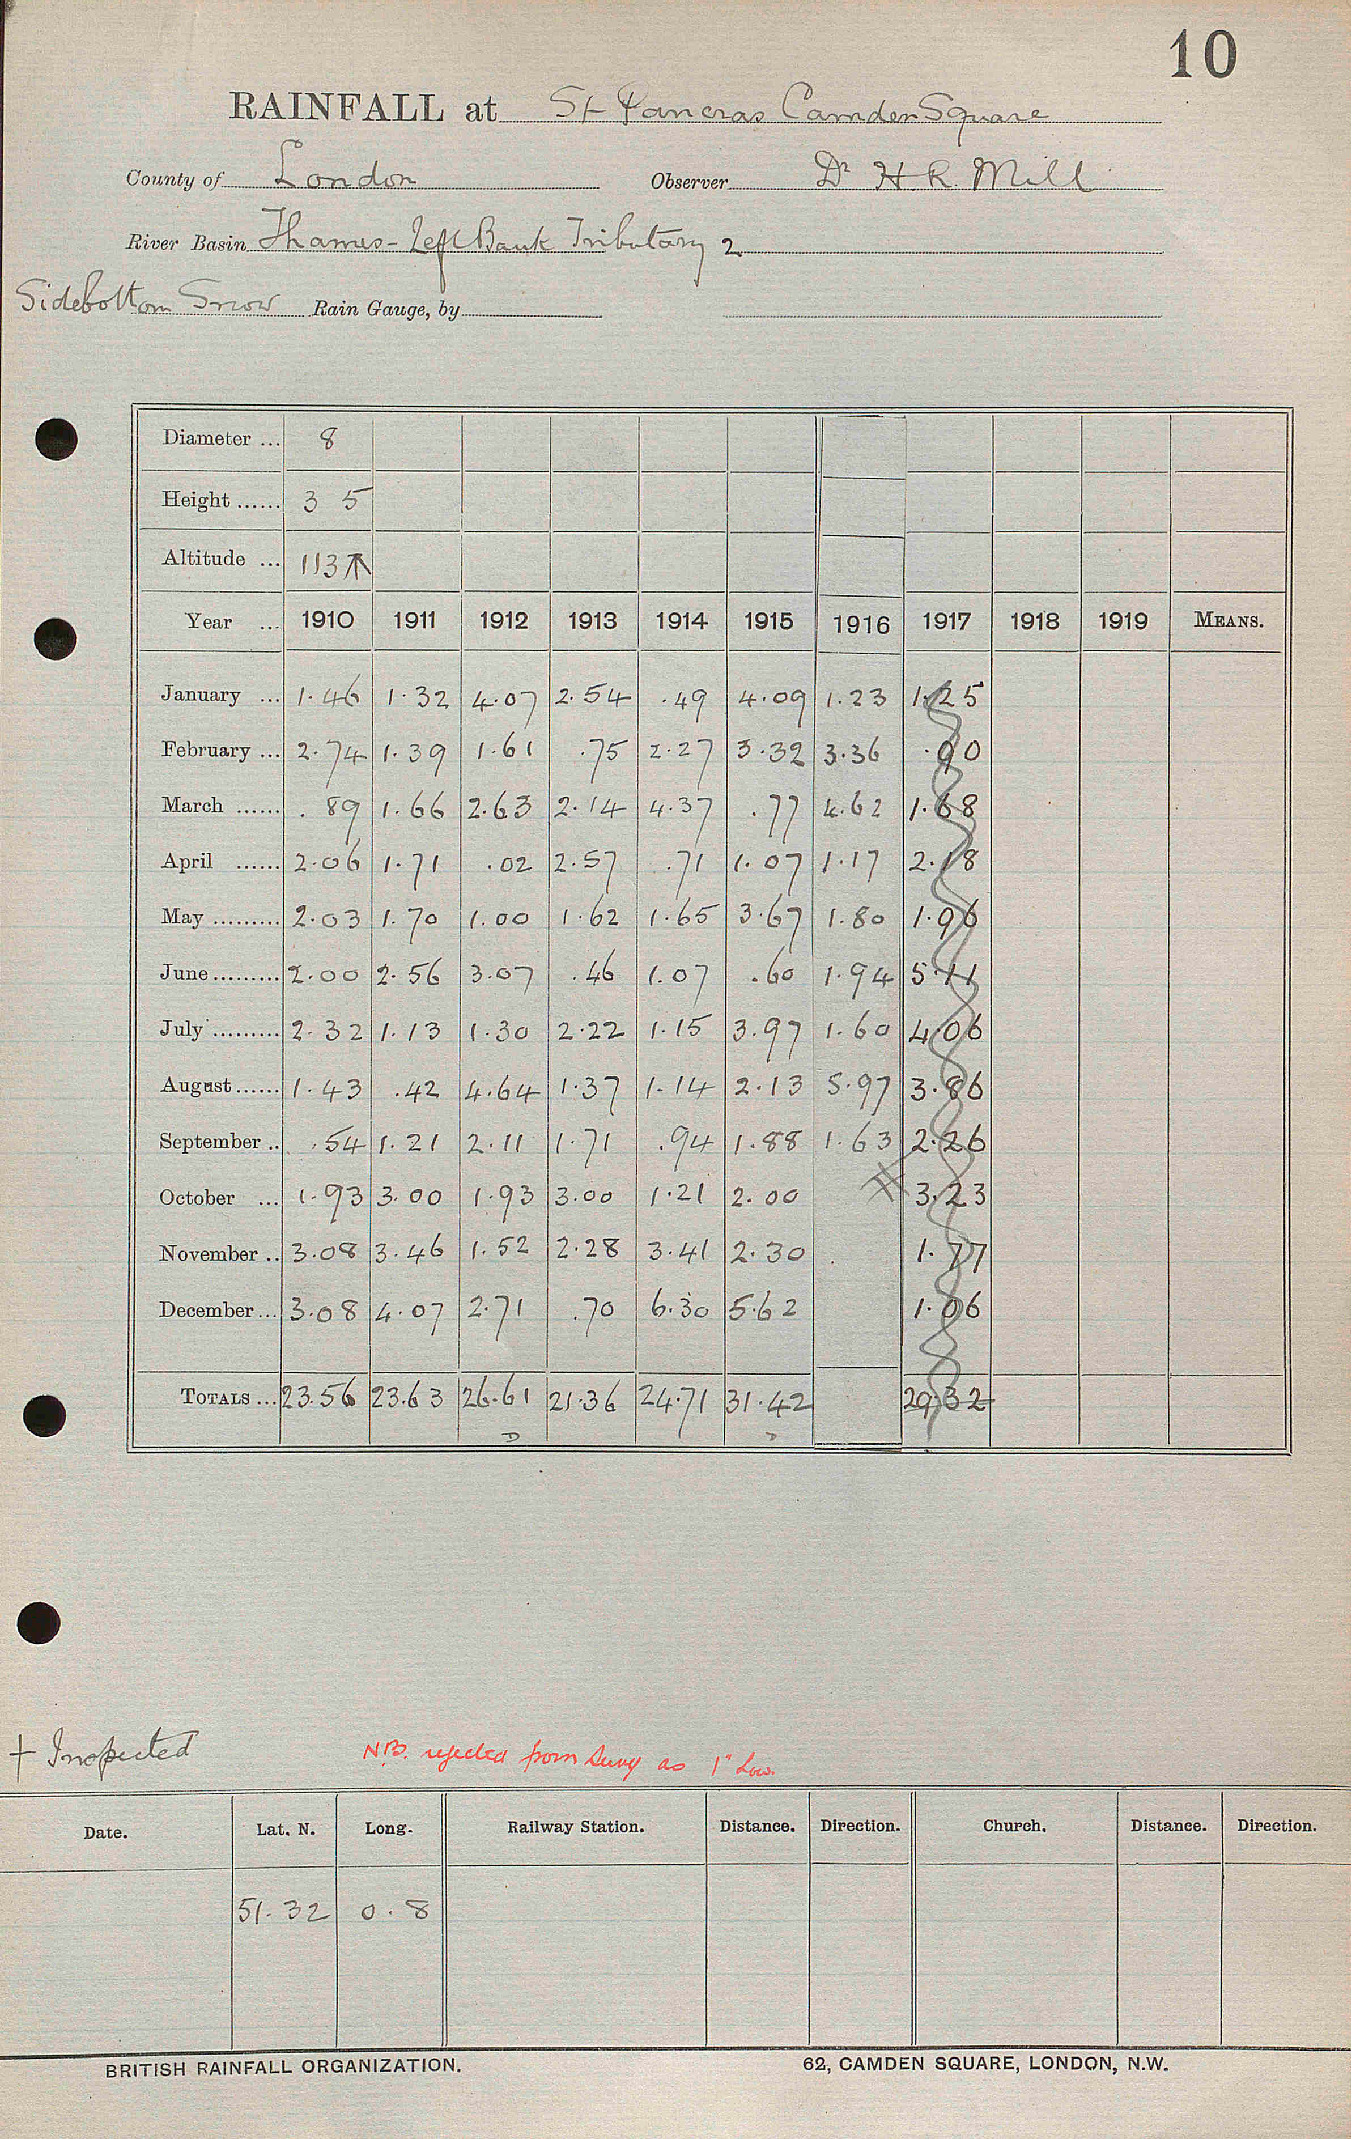 10
RAINFALL at St Pancras Camden Square
County of London Observer Dr H R. Mill
River Basin Thames - Left Bank Tributary 2
Sidebottom Snow Rain Gauge, by
Diameter ... 8
Height ...... 3 5
Altitude ... 113
Year ... 1910 1911 1912 1913 1914 1915 1916 1917 1918 1919 MEANS.
January ... 1.46 1.32 4.07 2.54 .49 4.09 1.23 1.25
February ... 2.74 1.39 1.61 .75 2.27 3.32 3.36 .90
March ...... .89 1.66 2.63 2.14 4.37 .77 4.62 1.68
April ...... 2.06 1.71 .02 2.57 .71 1.07 1.17 2.18
May ......... 2.03 1.70 1.00 1.62 1.65 3.67 1.80 1.96
June ......... 2.00 2.56 3.07 .46 1.07 .60 1.94 5.11
July ......... 2.32 1.13 1.30 2.22 1.15 3.97 1.60 4.06
August ...... 1.43 .42 4.64 1.37 1.14 2.13 5.97 3.86
September .. .54 1.21 2.11 1.71 .94 1.88 1.63 2.26
October ... 1.93 3.00 1.93 3.00 1.21 2.00 3.23
November .. 3.08 3.46 1.52 2.28 3.41 2.30 1.77
December ... 3.08 4.07 2.71 .70 6.30 5.62 1.06
TOTALS ... 23.56 23.63 26.61 21.36 24.71 31.42 29.32
D D
+ Inspected
N.B. rejected from as 1" Low.
Date. Lat. N. Long. Railway Station. Distance. Direction. Church. Distance. Direction.
51.32 0.8
BRITISH RAINFALL ORGANIZATION. 62, CAMDEN SQUARE, LONDON, N.W.